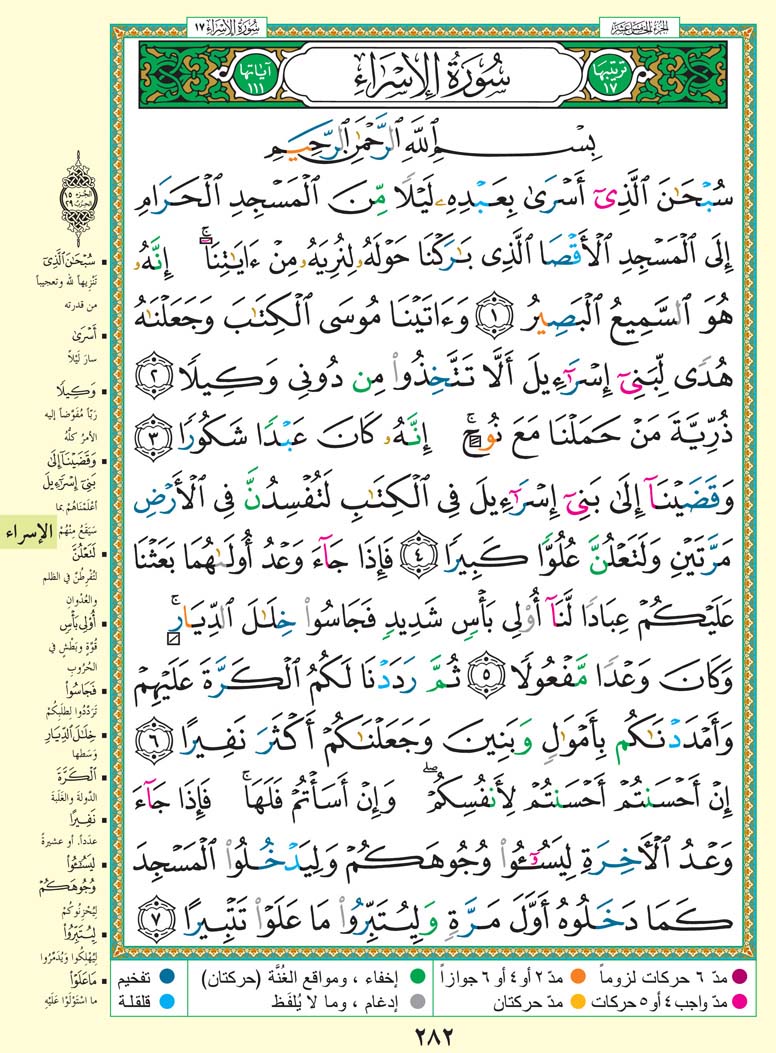 الجزء الخامس عشر
سورة الإسراء ١٧
ترتيبها ١٧
سُورَةُ الإِسْرَاءِ
آياتها ١١١
بِسْمِ ٱللَّهِ ٱلرَّحْمَٰنِ ٱلرَّحِيمِ
سُبْحَٰنَ ٱلَّذِىٓ أَسْرَىٰ بِعَبْدِهِۦ لَيْلًا مِّنَ ٱلْمَسْجِدِ ٱلْحَرَامِ
إِلَى ٱلْمَسْجِدِ ٱلْأَقْصَا ٱلَّذِى بَٰرَكْنَا حَوْلَهُۥ لِنُرِيَهُۥ مِنْ ءَايَٰتِنَآ ۚ إِنَّهُۥ
هُوَ ٱلسَّمِيعُ ٱلْبَصِيرُ ١ وَءَاتَيْنَا مُوسَى ٱلْكِتَٰبَ وَجَعَلْنَٰهُ
هُدًى لِّبَنِىٓ إِسْرَٰٓءِيلَ أَلَّا تَتَّخِذُوا۟ مِن دُونِى وَكِيلًا ٢
ذُرِّيَّةَ مَنْ حَمَلْنَا مَعَ نُوحٍ ۚ إِنَّهُۥ كَانَ عَبْدًا شَكُورًا ٣
وَقَضَيْنَآ إِلَىٰ بَنِىٓ إِسْرَٰٓءِيلَ فِى ٱلْكِتَٰبِ لَتُفْسِدُنَّ فِى ٱلْأَرْضِ
مَرَّتَيْنِ وَلَتَعْلُنَّ عُلُوًّا كَبِيرًا ٤ فَإِذَا جَآءَ وَعْدُ أُولَىٰهُمَا بَعَثْنَا
عَلَيْكُمْ عِبَادًا لَّنَآ أُو۟لِى بَأْسٍ شَدِيدٍ فَجَاسُوا۟ خِلَٰلَ ٱلدِّيَارِ ۚ
وَكَانَ وَعْدًا مَّفْعُولًا ٥ ثُمَّ رَدَدْنَا لَكُمُ ٱلْكَرَّةَ عَلَيْهِمْ
وَأَمْدَدْنَٰكُم بِأَمْوَٰلٍ وَبَنِينَ وَجَعَلْنَٰكُمْ أَكْثَرَ نَفِيرًا ٦
إِنْ أَحْسَنتُمْ أَحْسَنتُمْ لِأَنفُسِكُمْ ۖ وَإِنْ أَسَأْتُمْ فَلَهَا ۚ فَإِذَا جَآءَ
وَعْدُ ٱلْءَاخِرَةِ لِيَسُـۥٓـُٔوا۟ وُجُوهَكُمْ وَلِيَدْخُلُوا۟ ٱلْمَسْجِدَ
كَمَا دَخَلُوهُ أَوَّلَ مَرَّةٍ وَلِيُتَبِّرُوا۟ مَا عَلَوْا۟ تَتْبِيرًا ٧
الجزء ١٥
الحزب ٢٩
سُبْحَٰنَ ٱلَّذِى
تَنْزِيهاً لله وتعجيباً
من قدرته
أَسْرَىٰ
سارَ لَيْلاً
وَكِيلًا
رَبّاً مُفَوَّضاً إليه
الأمرُ كلُّه
وَقَضَيْنَآ إِلَىٰ
بَنِىٓ إِسْرَٰٓءِيلَ
أعْلَمْنَاهُمْ بما
سَيَقَعُ مِنْهُمْ
الإسراء
لَتَعْلُنَّ
لتُفْرِطُنَّ في الظلم
والعُدْوانِ
أُو۟لِى بَأْسٍ
قُوَّةٍ وبَطْشٍ في
الحُرُوبِ
فَجَاسُوا۟
تَرَدَّدُوا لِطَلَبِكُمْ
خِلَٰلَ ٱلدِّيَارِ
وَسَطها
ٱلْكَرَّةَ
الدَّولةَ والغَلَبَة
نَفِيرًا
عدَداً. أو عشيرةً
لِيَسُـُٔوا۟
وُجُوهَكُمْ
لِيُحْزِنُوكُمْ
لِيُتَبِّرُوا۟
لِيُهْلِكوا ويُدَمِّرُوا
مَا عَلَوْا۟
ما اسْتَوْلَوْا عَلَيْهِ
مدّ ٦ حركات لزوماً مدّ ٢ أو ٤ أو ٦ جوازاً إخفاء ، ومواقع الغُنَّة (حركتان) تفخيم
مدّ واجب ٤ أو ٥ حركات مدّ حركتان إدغام ، وما لا يُلفَظ قلقلة
٢٨٢